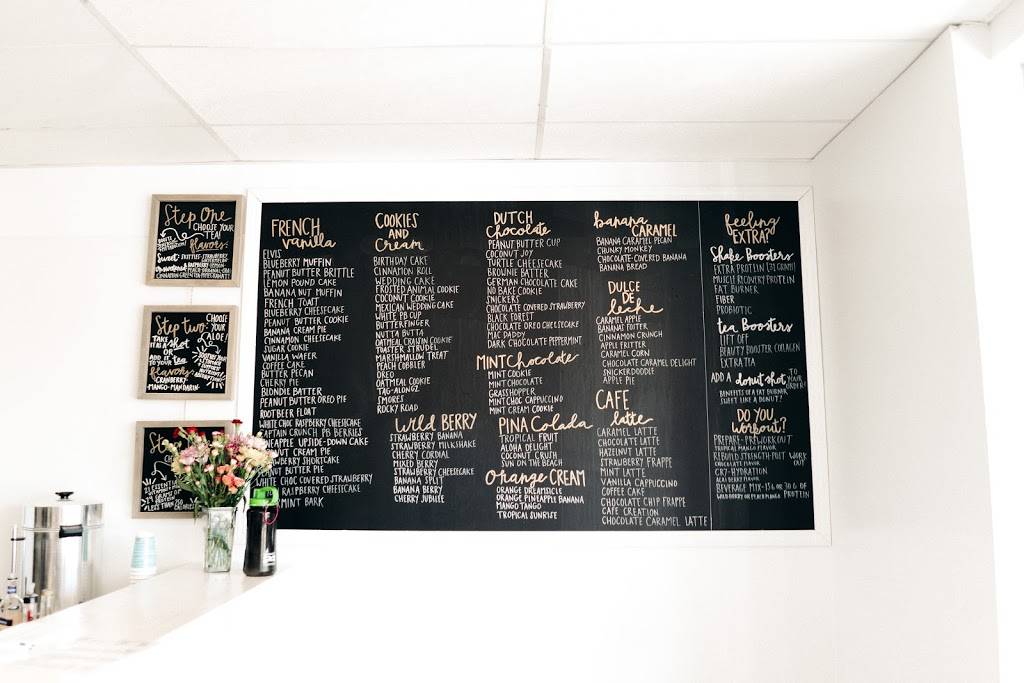 Step One
CHOOSE YOUR
TEA!
flavors:
Sweet
Step two:
CHOOSE
YOUR
ALOE!
TAKE
IT IN A shot
OR
ADD IT
TO YOUR tea
flavors:
CRANBERRY-
MANGO-MANDARIN-
FRENCH
vanilla
ELVIS
BLUEBERRY MUFFIN
PEANUT BUTTER BRITTLE
LEMON POUND CAKE
BANANA NUT MUFFIN
FRENCH TOAT
BLUEBERRY CHEESECAKE
PEANUT BUTTER COOKIE
BANANA CREAM PIE
CINNAMON CHEESECAKE
SUGAR COOKIE
VANILLA WAFER
COFFEE CAKE
BUTTER PECAN
CHERRY PIE
BLONDIE BATTER
PEANUT BUTTER OREO PIE
ROOT BEER FLOAT
WHITE CHOC RASPBERRY CHEESECAKE
CAPTAIN CRUNCH PB BERRIES
PINEAPPLE UPSIDE-DOWN CAKE
CREAM PIE
SHORTCAKE
BUTTER PIE
WHITE CHOC COVERED STRAWBERRY
RASPBERRY CHEESECAKE
MINT BARK
COOKIES
AND
Cream
BIRTHDAY CAKE
CINNAMON ROLL
WEDDING CAKE
FROSTED ANIMAL COOKIE
COCONUT COOKIE
MEXICAN WEDDING CAKE
WHITE PB CUP
BUTTERFINGER
NUTTA BUTTA
OATMEAL CRAISIN COOKIE
TOASTER STRUDEL
MARSHMALLOW TREAT
PEACH COBBLER
OREO
OATMEAL COOKIE
TAG-ALONGZ
S'MORES
ROCKY ROAD
Wild BERRY
STRAWBERRY BANANA
STRAWBERRY MILKSHAKE
CHERRY CORDIAL
MIXED BERRY
STRAWBERRY CHEESECAKE
BANANA SPLIT
BANANA BERRY
CHERRY JUBILEE
DUTCH
Chocolate
PEANUT BUTTER CUP
COCONUT JOY
TURTLE CHEESECAKE
BROWNIE BATTER
GERMAN CHOCOLATE CAKE
NO BAKE COOKIE
SNICKERS
CHOCOLATE COVERED STRAWBERRY
BLACK FOREST
CHOCOLATE OREO CHEESECAKE
MAC DADDY
DARK CHOCOLATE PEPPERMINT
MINT Chocolate
MINT COOKIE
MINT CHOCOLATE
GRASSHOPPER
MINT CHOC CAPPUCCINO
MINT CREAM COOKIE
PINA Colada
TROPICAL FRUIT
ALOHA DELIGHT
COCONUT CRUSH
SUN ON THE BEACH
Orange CREAM
ORANGE DREAMSICLE
ORANGE PINEAPPLE BANANA
MANGO TANGO
TROPICAL SUNRISE
banana
CARAMEL
BANANA CARAMEL PECAN
CHUNKY MONKEY
CHOCOLATE-COVERED BANANA
BANANA BREAD
DULCE
DE
leche
CARAMEL APPLE
BANANAS FOSTER
CINNAMON CRUNCH
APPLE FRITTER
CARAMEL CORN
CHOCOLATE CARAMEL DELIGHT
SNICKERDOODLE
APPLE PIE
CAFE
latte
CARAMEL LATTE
CHOCOLATE LATTE
HAZELNUT LATTE
STRAWBERRY FRAPPE
MINT LATTE
VANILLA CAPPUCCINO
COFFEE CAKE
CHOCOLATE CHIP FRAPPE
CAFE CREATION
CHOCOLATE CARAMEL LATTE
feeling
EXTRA?
Shake Boosters
EXTRA PROTEIN
MUSCLE RECOVERY PROTEIN
FAT BURNER
FIBER
PROBIOTIC
tea Boosters
LIFT OFF
BEAUTY BOOSTER COLLAGEN
EXTRA TEA
ADD A donut shot TO YOUR ORDER!
BENEFITS OF A FAT BURNER
SWEET LIKE A DONUT!
DO YOU
workout?
PREPARE-PREWORKOUT
TROPICAL MANGO FLAVOR
REBUILD STRENGTH-POST WORK OUT
CHOCOLATE FLAVOR
CR7-HYDRATION
ACAI BERRY FLAVOR
BEVERAGE MIX-15G OR 30G OF PROTEIN
WILD BERRY OR PEACH MANGO